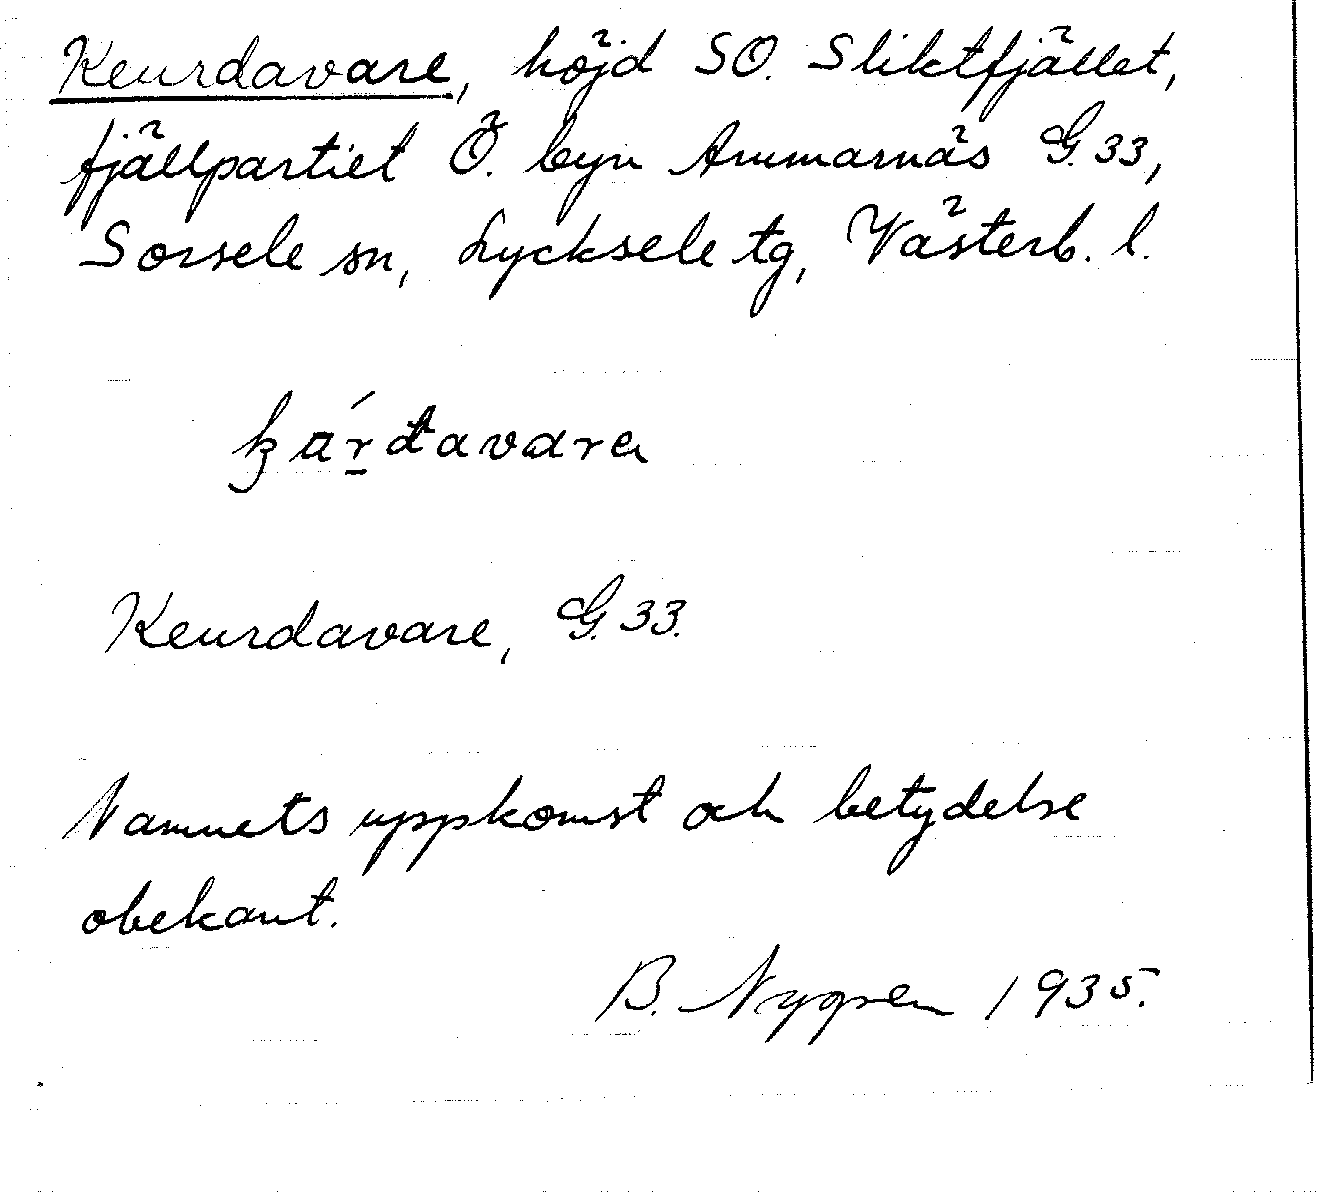 Keurdavare, höjd SO. Sliktfjället,
fjällpartiet Ö. byn Ammarnäs G. 33,
Sorsele sn, Lycksele tg, Västerb. l.
Keurdavare, G. 33.
Namnets uppkomst och betydelse
obekant.
B. Nygren 1935.